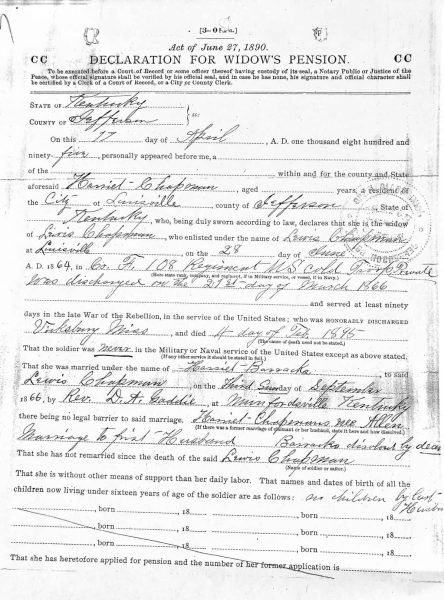 [3-081.]
Act of June 27, 1890.
CC DECLARATION FOR WIDOW'S PENSION. CC
To be executed before a Court of Record or some officer thereof having custody of its seal, a Notary Public or Justice of the
Peace, whose official signature shall be verified by his official seal, and in case he has none, his signature and official character shall
be certified by a Clerk of a Court of Record, or a City or County Clerk.
STATE OF Kentucky
COUNTY OF Jefferson } ss:
On this 17 day of April, A. D. one thousand eight hundred and
ninety-five, personally appeared before me, a
of the within and for the county and State
aforesaid Harriet Chapman, aged years, a resident of
the City of Louisville, county of Jefferson State of
Kentucky, who, being duly sworn according to law, declares that she is the widow
of Lewis Chapman, who enlisted under the name of Lewis Chapman
at Louisville on the 28 day of June,
A. D. 1864, in Co. F, 108 Regiment U S Cold Private
(Note state rank, company, and regiment, if in Military service, or vessel, if in Navy.)
Was discharged on the 21st day of March 1866
and served at least ninety
days in the late War of the Rebellion, in the service of the United States; who was HONORABLY DISCHARGED
Vicksburg Miss, and died 4 day of Feb, 1895
(The cause of death need not be stated.)
That the soldier was never in the Military or Naval service of the United States except as above stated.
(If any other service it should be stated in full.)
That she was married under the name of Harriet to said
Lewis Chapman, on the Third Sunday of September
1866, by Rev. D. A. Gaddie, at Munfordsville Kentucky
there being no legal barrier to said marriage. Harriet Chapmans nee Allen
(If there was a former marriage of claimant or her husband, state it here and how dissolved.)
Marriage to first Husband disolved by
That she has not remarried since the death of the said Lewis
Chapman
(Name of soldier or sailor.)
That she is without other means of support than her daily labor. That names and dates of birth of all the
children now living under sixteen years of age of the soldier are as follows: no children by last
, born , 18 , born , 18
, born , 18 , born , 18
, born , 18 , born , 18
That she has heretofore applied for pension and the number of her former application is